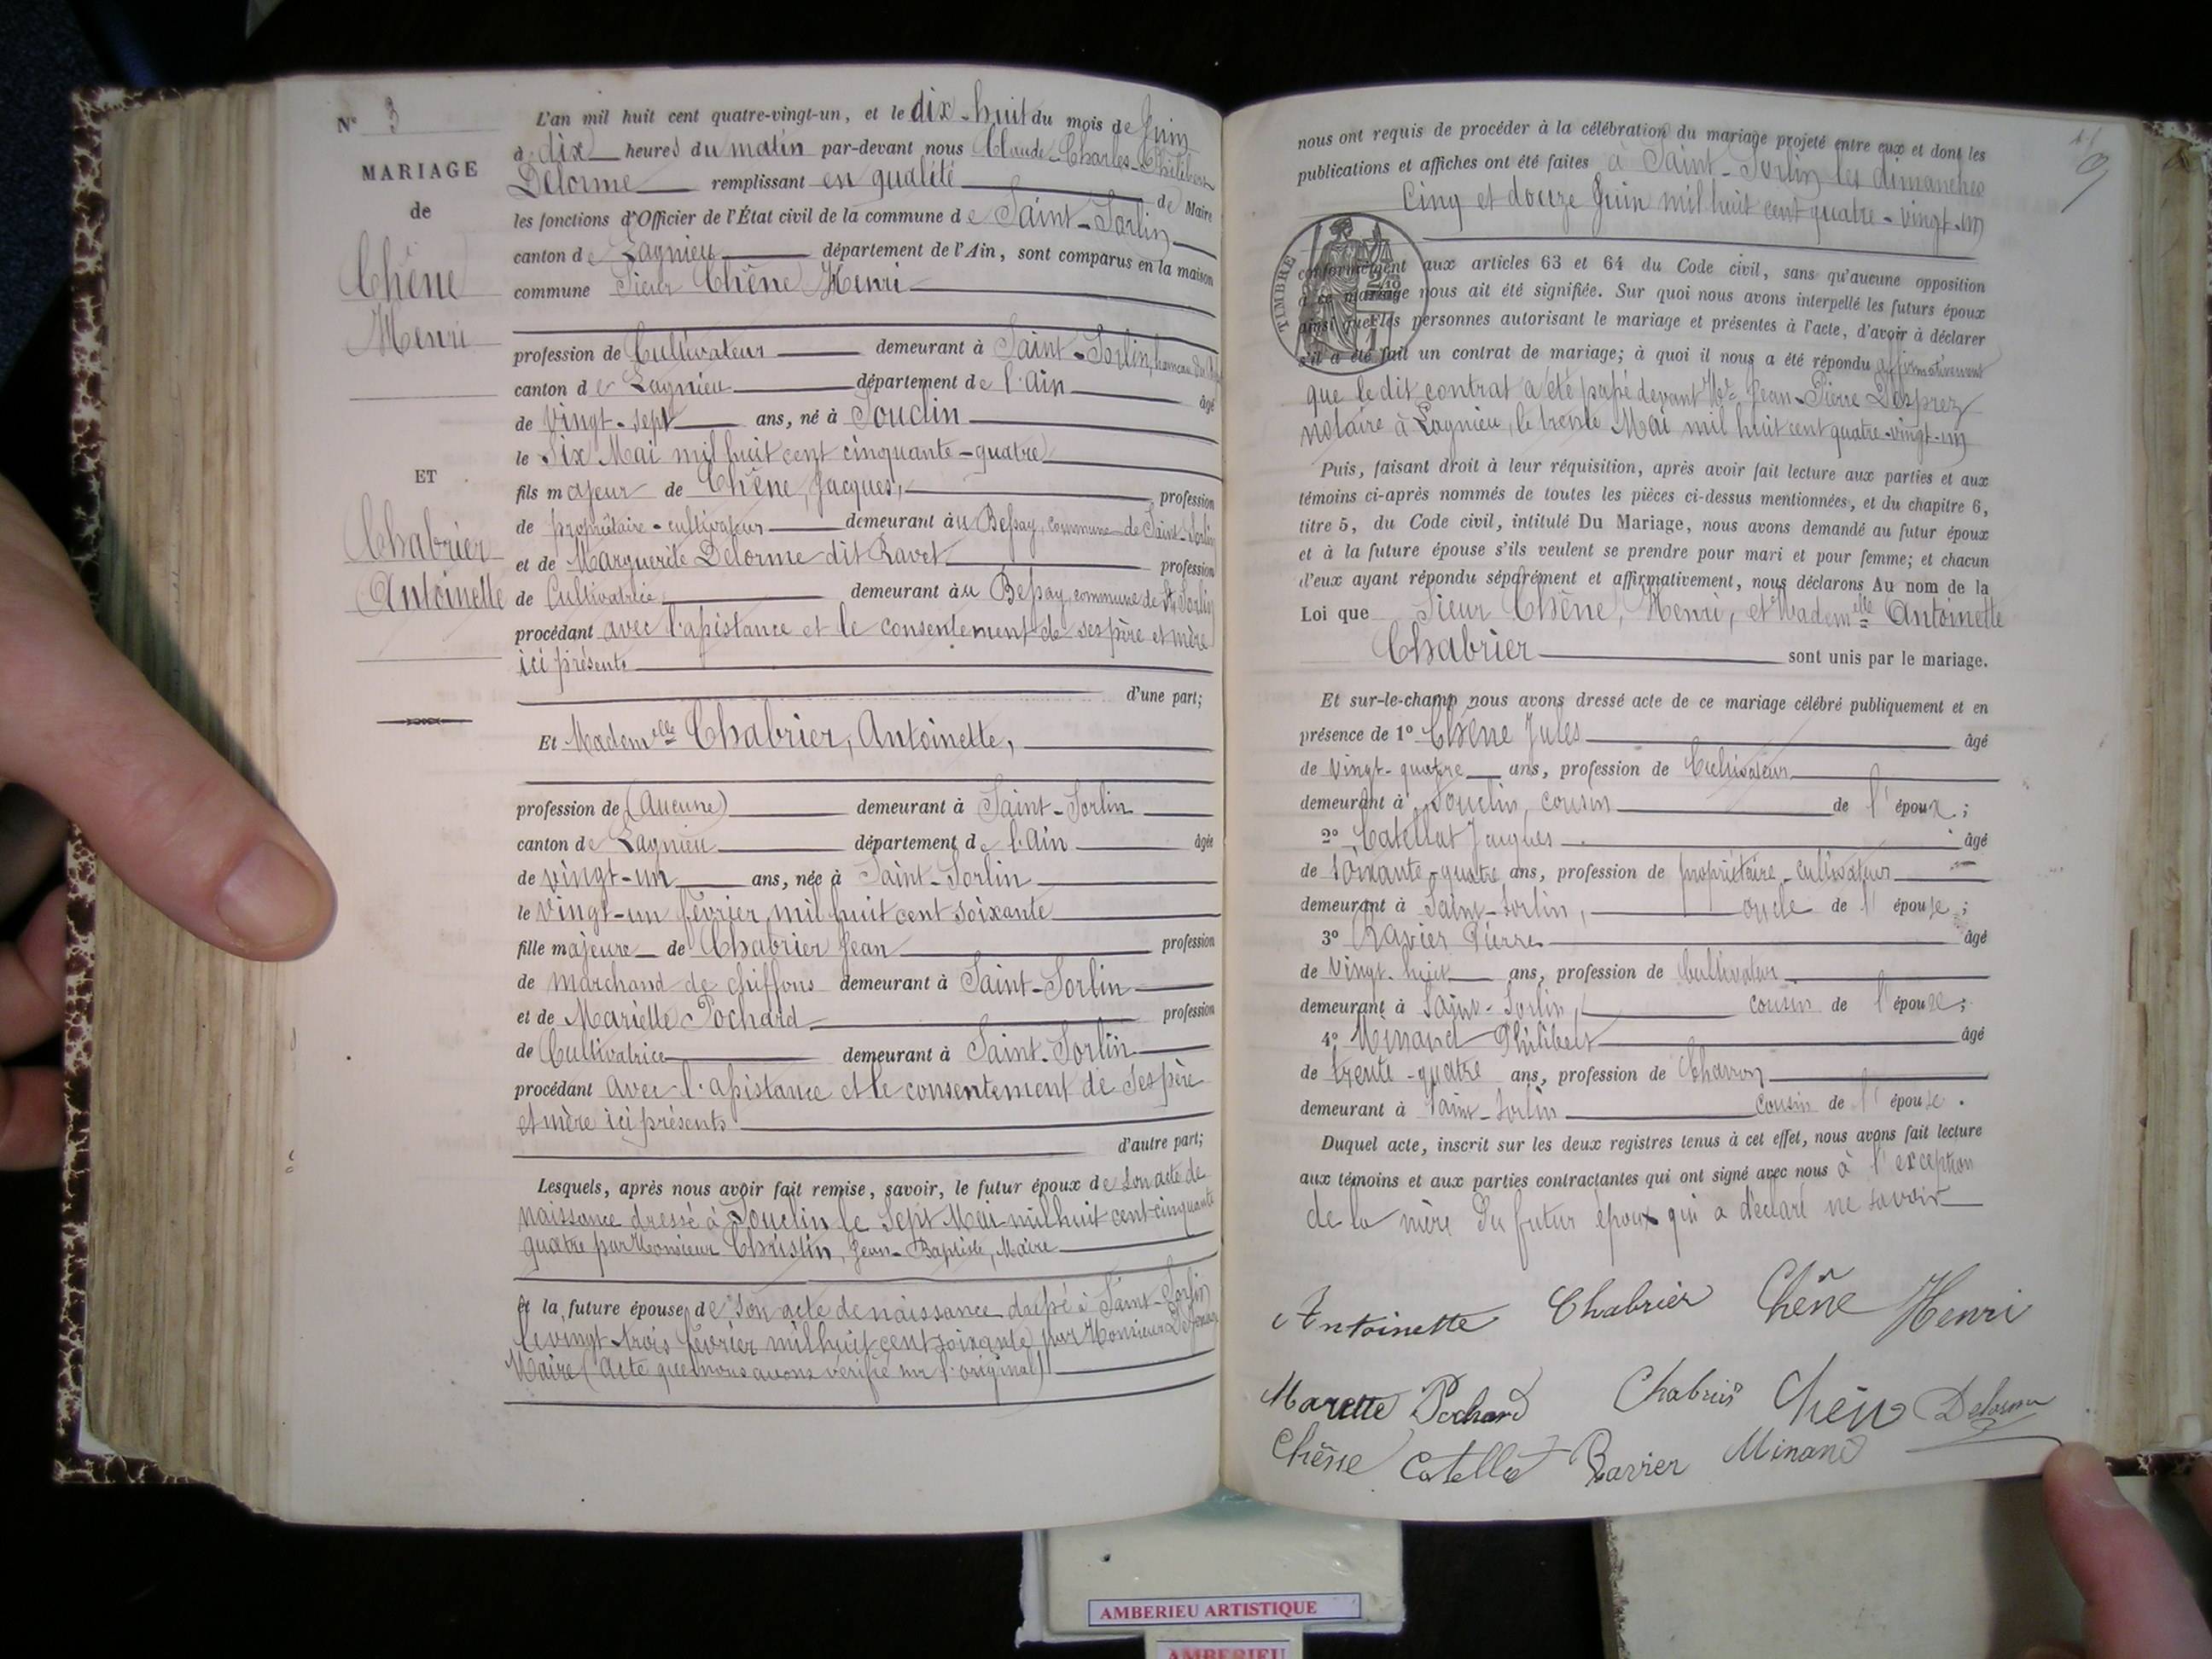 N° 3
MARIAGE
de
Chêne
Henri
ET
Chabrier
Antoinette
L'an mil huit cent quatre-vingt-un, et le dix-huit du mois de Juin
à dix heures du matin par-devant nous Claude-Charles-Philibert
Delorme remplissant en qualité de Maire
les fonctions d'Officier de l'État civil de la commune de Saint-Sorlin
canton de Lagnieu département de l'Ain, sont comparus en la maison
commune Sieur Chêne Henri
profession de Cultivateur demeurant à Saint-Sorlin, hameau du
canton de Lagnieu département de l'Ain âgé
de vingt-sept ans, né à Souclin
le Six Mai mil huit cent cinquante-quatre
fils majeur de Chêne, Jacques, profession
de propriétaire-cultivateur demeurant au Bessay, commune de Saint-Sorlin
et de Marguerite Delorme dit Ravet profession
de Cultivatrice demeurant au Bessay, commune de St Sorlin
procédant avec l'assistance et le consentement de ses père et mère
ici présents
d'une part;
Et Mademelle Chabrier, Antoinette,
profession de (Aucune) demeurant à Saint-Sorlin
canton de Lagnieu département de l'Ain âgée
de vingt-un ans, née à Saint-Sorlin
le vingt-un février mil huit cent soixante
fille majeure de Chabrier Jean profession
de marchand de chiffons demeurant à Saint-Sorlin
et de Mariette Pochard profession
de Cultivatrice demeurant à Saint-Sorlin
procédant avec l'assistance et le consentement de ses père
et mère ici présents
d'autre part;
Lesquels, après nous avoir fait remise, savoir, le futur époux de son acte de
naissance dressé à Souclin le Sept Mai mil huit cent cinquante
quatre par Monsieur Christin, Jean-Baptiste, Maire
et la future épouse de son acte de naissance dressé à Saint-Sorlin
le vingt-trois février mil huit cent soixante par Monsieur
Maire (Acte que nous avons vérifié sur l'original)
9
nous ont requis de procéder à la célébration du mariage projeté entre eux et dont les
publications et affiches ont été faites à Saint-Sorlin les dimanches
Cinq et douze Juin mil huit cent quatre-vingt-un
TIMBRE
conformément aux articles 63 et 64 du Code civil, sans qu'aucune opposition
à ce mariage nous ait été signifiée. Sur quoi nous avons interpellé les futurs époux
ainsi que les personnes autorisant le mariage et présentes à l'acte, d'avoir à déclarer
s'il a été fait un contrat de mariage; à quoi il nous a été répondu affirmativement
que le dit contrat a été passé devant Me Jean-Pierre Desprez
notaire à Lagnieu, le trente Mai mil huit cent quatre-vingt-un
Puis, faisant droit à leur réquisition, après avoir fait lecture aux parties et aux
témoins ci-après nommés de toutes les pièces ci-dessus mentionnées, et du chapitre 6,
titre 5, du Code civil, intitulé Du Mariage, nous avons demandé au futur époux
et à la future épouse s'ils veulent se prendre pour mari et pour femme; et chacun
d'eux ayant répondu séparément et affirmativement, nous déclarons Au nom de la
Loi que Sieur Chêne, Henri, et Mademelle Antoinette
Chabrier sont unis par le mariage.
Et sur-le-champ nous avons dressé acte de ce mariage célébré publiquement et en
présence de 1° Chêne Jules âgé
de vingt-quatre ans, profession de Cultivateur
demeurant à Souclin, cousin de l'époux;
2° Catellat Jacques âgé
de soixante-quatre ans, profession de propriétaire-cultivateur
demeurant à Saint-Sorlin, oncle de l'épouse;
3° Ravier Pierre âgé
de vingt-huit ans, profession de Cultivateur
demeurant à Saint-Sorlin, cousin de l'épouse;
4° Minand Philibert âgé
de trente-quatre ans, profession de Charron
demeurant à Saint-Sorlin cousin de l'épouse.
Duquel acte, inscrit sur les deux registres tenus à cet effet, nous avons fait lecture
aux témoins et aux parties contractantes qui ont signé avec nous à l'exception
de la mère du futur époux qui a déclaré ne savoir
Antoinette Chabrier Chêne Henri
Marette Pochard Chabrier Chêne Delorme
Chêne Catellat Ravier Minand
AMBERIEU ARTISTIQUE
AMBERIEU